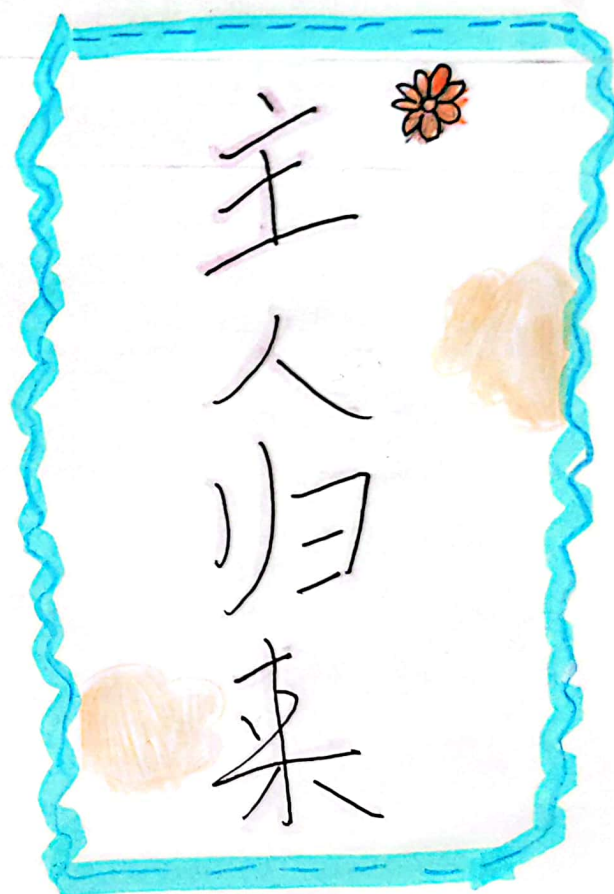 主人归来